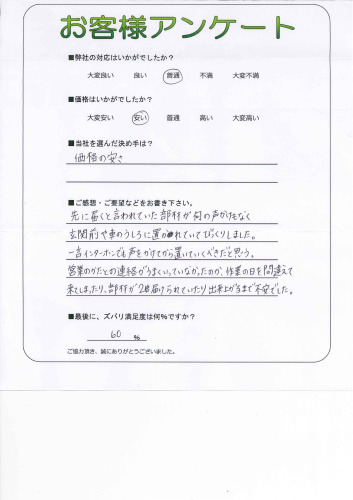 お客様アンケート
■弊社の対応はいかがでしたか？
大変良い 良い 普通 不満 大変不満
■価格はいかがでしたか？
大変安い 安い 普通 高い 大変高い
■当社を選んだ決め手は？
価格の安さ
■ご感想・ご要望などをお書き下さい。
先に届くと言われていた部材が何の声かけもなく
玄関前や車のうしろに置かれていてびっくりしました。
一言インターホンでも声をかけてから置いていくべきだと思う。
営業のかたとの連絡がうまくいっていなかったのか、作業の日を間違えて
来てしまったり、部材が2回届けられていたり出来上がるまで不安でした。
■最後に、ズバリ満足度は何%ですか？
60 %
ご協力頂き、誠にありがとうございました。